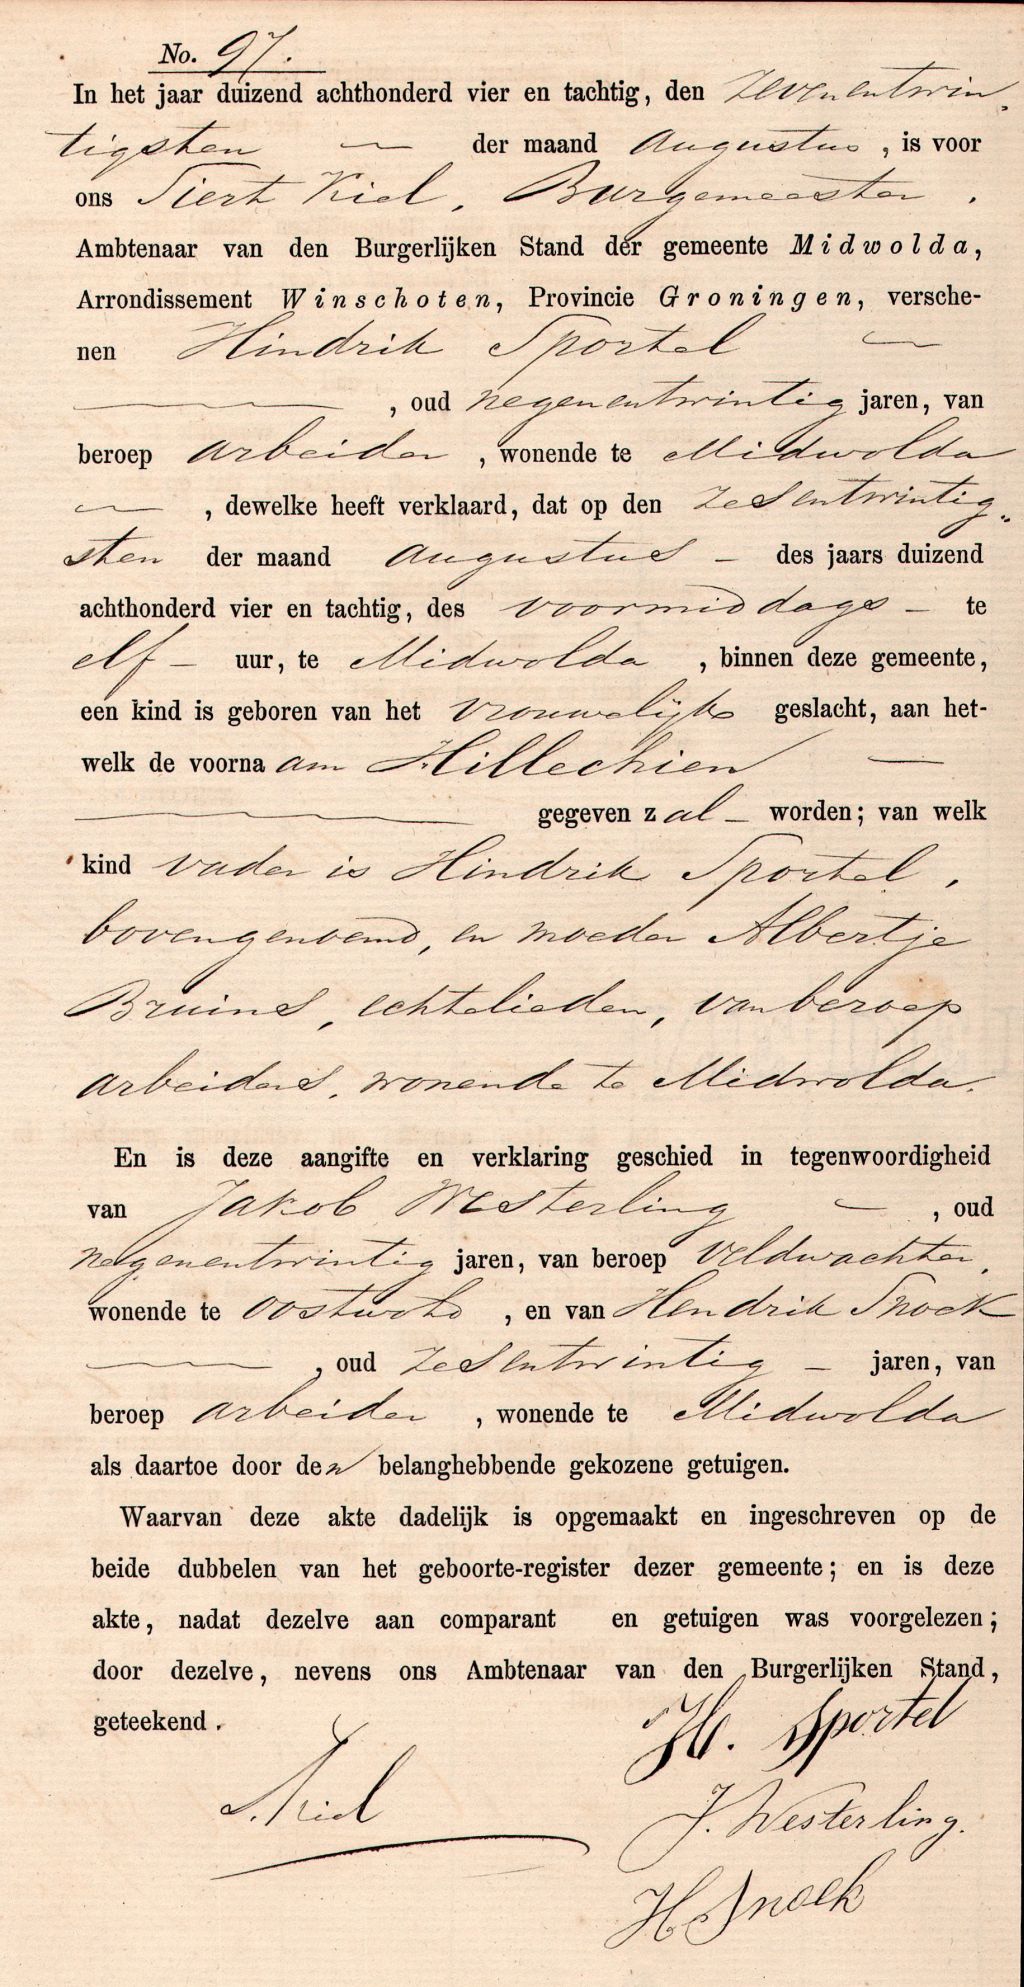 No. 97.
In het jaar duizend achthonderd vier en tachtig, den zevenentwin-
tigsten — der maand Augustus, is voor
ons Tiert Kiel, Burgemeester,
Ambtenaar van den Burgerlijken Stand der gemeente Midwolda,
Arrondissement Winschoten, Provincie Groningen, versche-
nen Hindrik Sportel —
—, oud negenentwintig jaren, van
beroep arbeider, wonende te Midwolda
—, dewelke heeft verklaard, dat op den zesentwintig-
sten der maand Augustus — des jaars duizend
achthonderd vier en tachtig, des voormiddags — te
elf — uur, te Midwolda, binnen deze gemeente,
een kind is geboren van het vrouwelijk geslacht, aan het-
welk de voornaam Hillechien —
— gegeven zal — worden; van welk
kind vader is Hindrik Sportel,
bovengenoemd, en moeder Albertje
Bruins, echtelieden, van beroep
arbeiders, wonende te Midwolda.
En is deze aangifte en verklaring geschied in tegenwoordigheid
van Jakob Westerling —, oud
negenentwintig jaren, van beroep veldwachter,
wonende te Oostwold, en van Hendrik Snoek
—, oud zesentwintig — jaren, van
beroep arbeider, wonende te Midwolda
als daartoe door den belanghebbende gekozene getuigen.
Waarvan deze akte dadelijk is opgemaakt en ingeschreven op de
beide dubbelen van het geboorte-register dezer gemeente; en is deze
akte, nadat dezelve aan comparant en getuigen was voorgelezen;
door dezelve, nevens ons Ambtenaar van den Burgerlijken Stand,
geteekend.
H. Sportel
T. Kiel
J. Westerling.
H Snoek